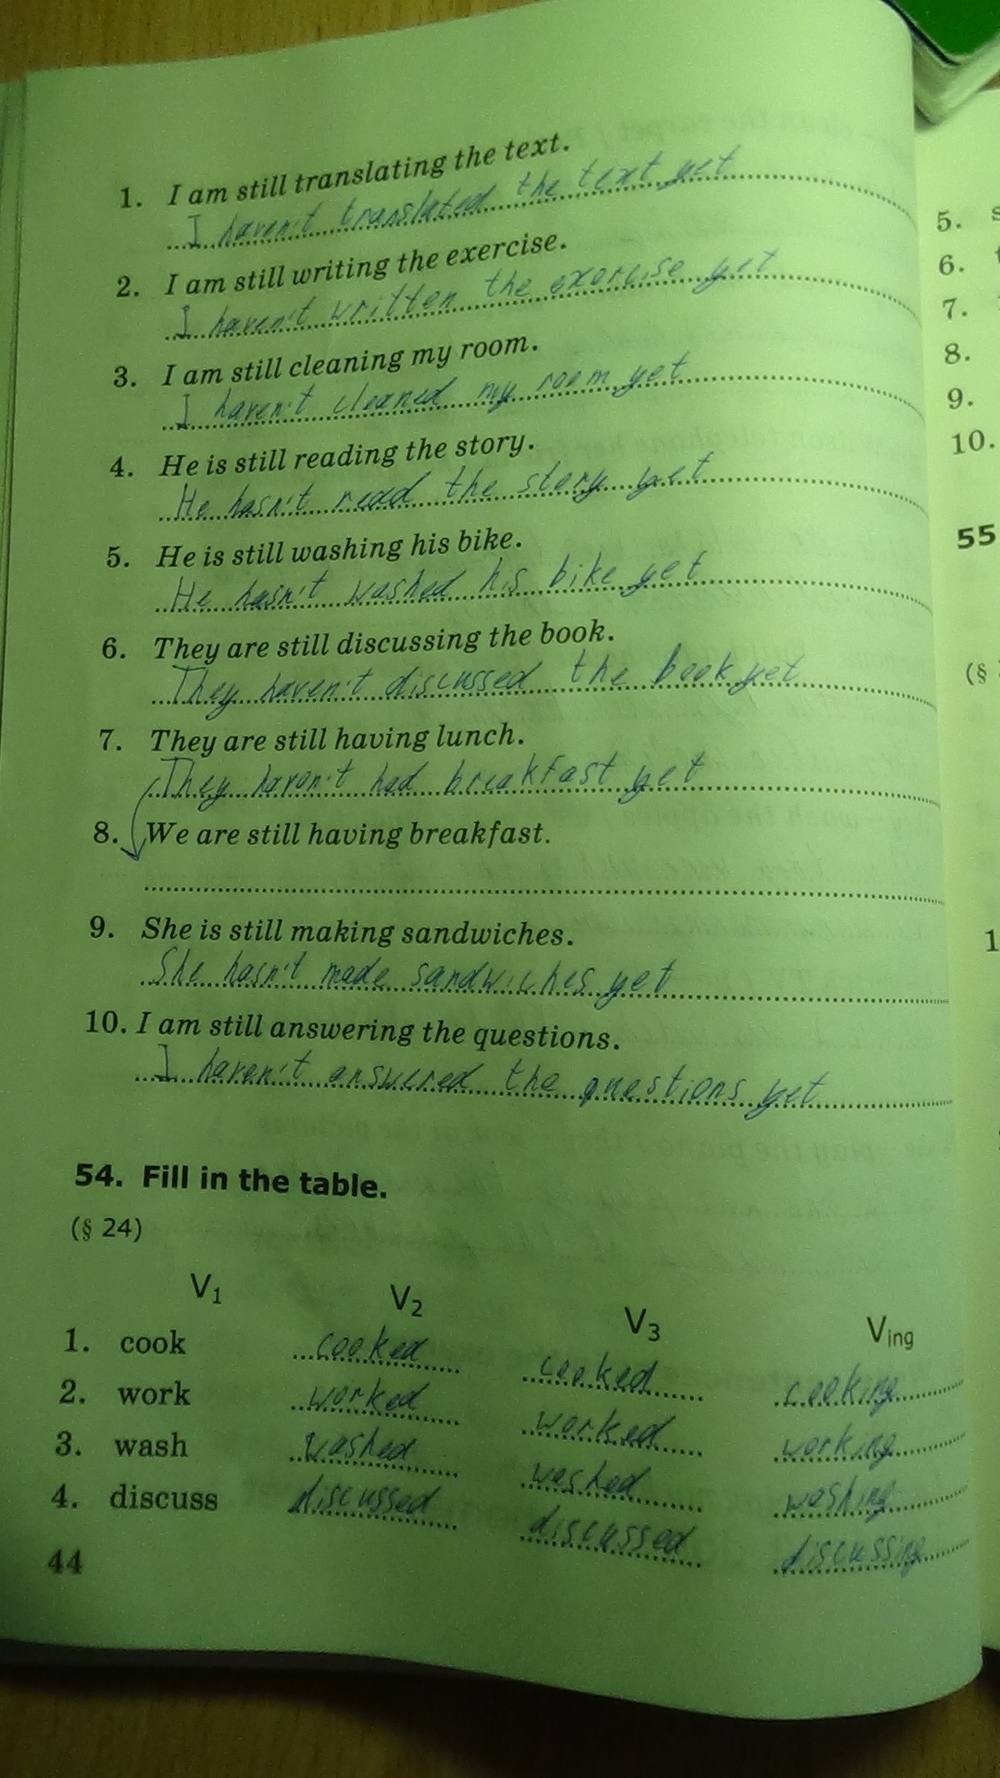 1. I am still translating the text.
I haven't translated the text yet
2. I am still writing the exercise.
I haven't written the exercise yet
3. I am still cleaning my room.
I haven't cleaned my room yet
4. He is still reading the story.
He hasn't read the story yet
5. He is still washing his bike.
He hasn't washed his bike yet
6. They are still discussing the book.
They haven't discussed the book yet
7. They are still having lunch.
They haven't had breakfast yet
8. We are still having breakfast.
9. She is still making sandwiches.
She hasn't made sandwiches yet
10. I am still answering the questions.
I haven't answered the questions yet
54. Fill in the table.
(§ 24)
V1 V2 V3 Ving
1. cook cooked cooked cooking
2. work worked worked working
3. wash washed washed washing
4. discuss discussed discussed discussing
44
5.
6.
7.
8.
9.
10.
55
(§
1